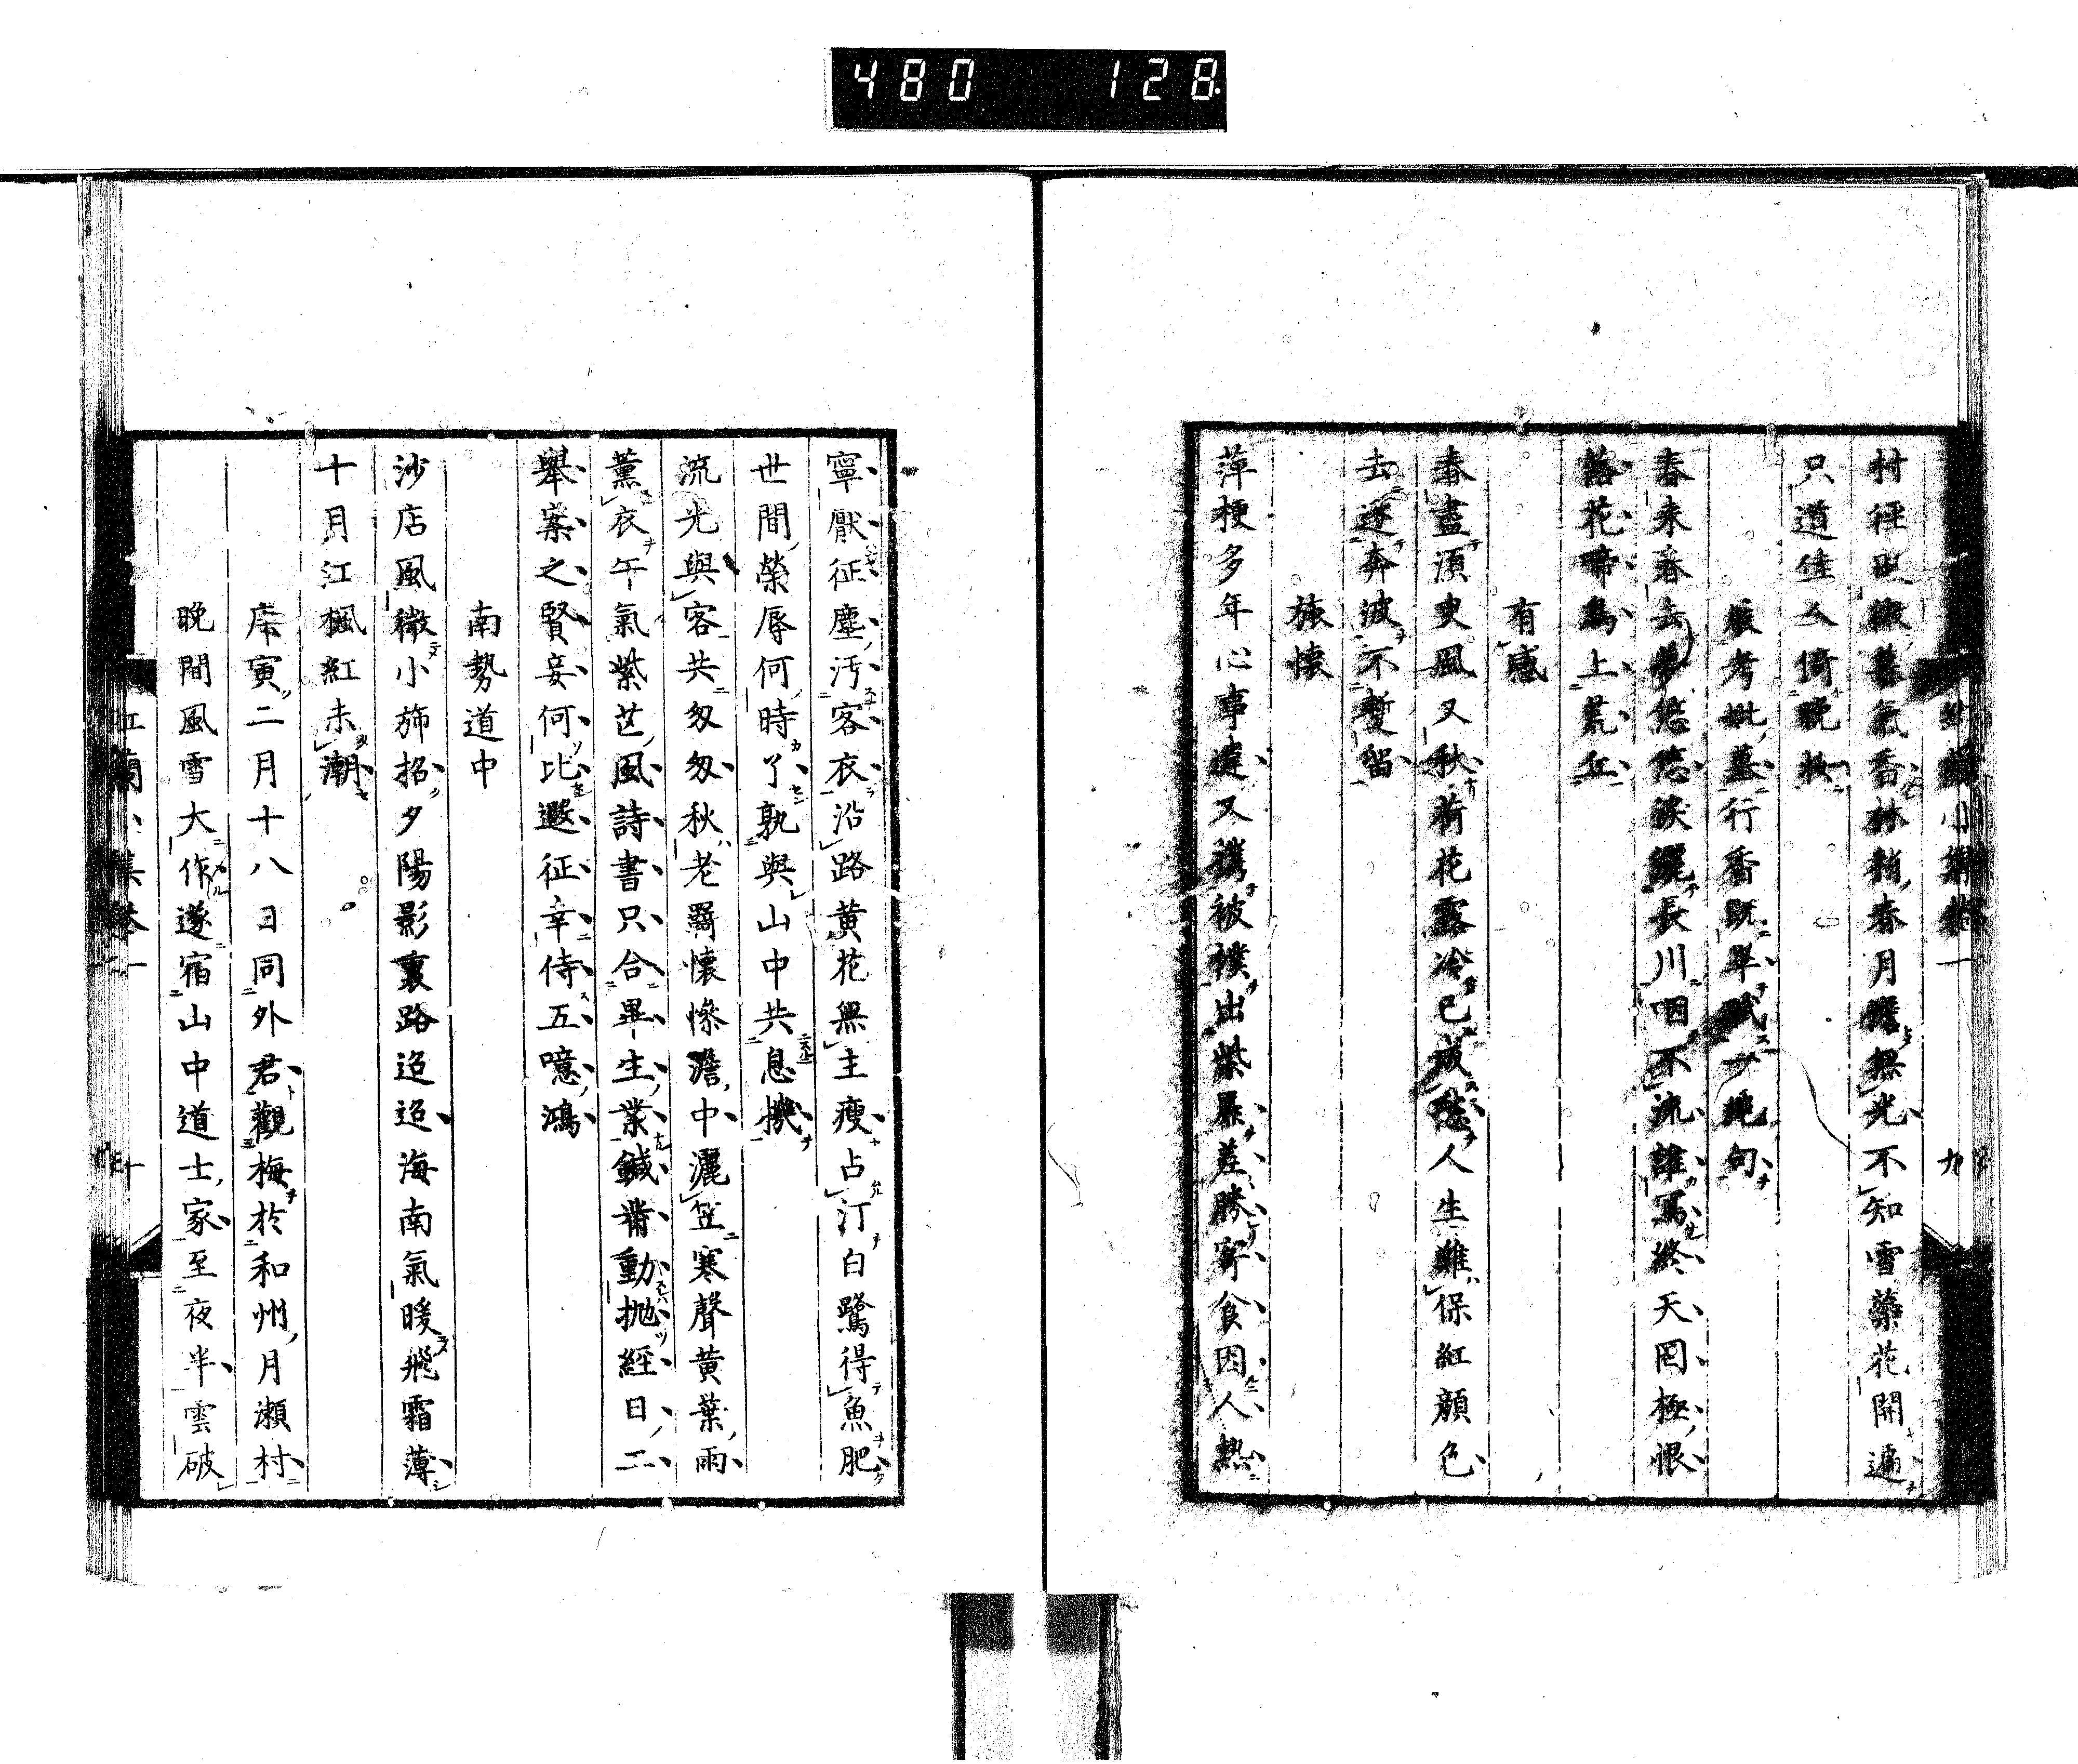 480 128
紅蘭小集卷一 九
村徑輕微暮氣香林梢春月澹無光不知雪蘂花開遍
只道佳人倚晚妝
嚴考妣墓行香既畢賦一絶句
春来春去夢悠悠淚纚長川咽不流誰寫終天罔極恨
落花啼鳥上荒丘
有感
春盡須臾風又秋荷花露冷已成愁人生難保紅顔色
去逐奔波不暫留
旅懷
萍梗多年心事違又攜被襆出柴扉差勝寄食因人熱
寧厭征塵汚客衣沿路黄花無主瘦占汀白鷺得魚肥
世間榮辱何時了孰與山中共息機
流光與客共匆匆秋老羇懷慘澹中灑笠寒聲黄葉雨
薰衣午氣紫芝風詩書只合畢生業鍼黹動抛經日工
舉案之賢妾何比遐征幸侍五噫鴻
南勢道中
沙店風微小斾招夕陽影裏路迢迢海南氣暖飛霜薄
十月江楓紅未潮
庚寅二月十八日同外君觀梅於和州月瀬村
晩間風雪大作遂宿山中道士家至夜半雲破
紅蘭小集卷一 十